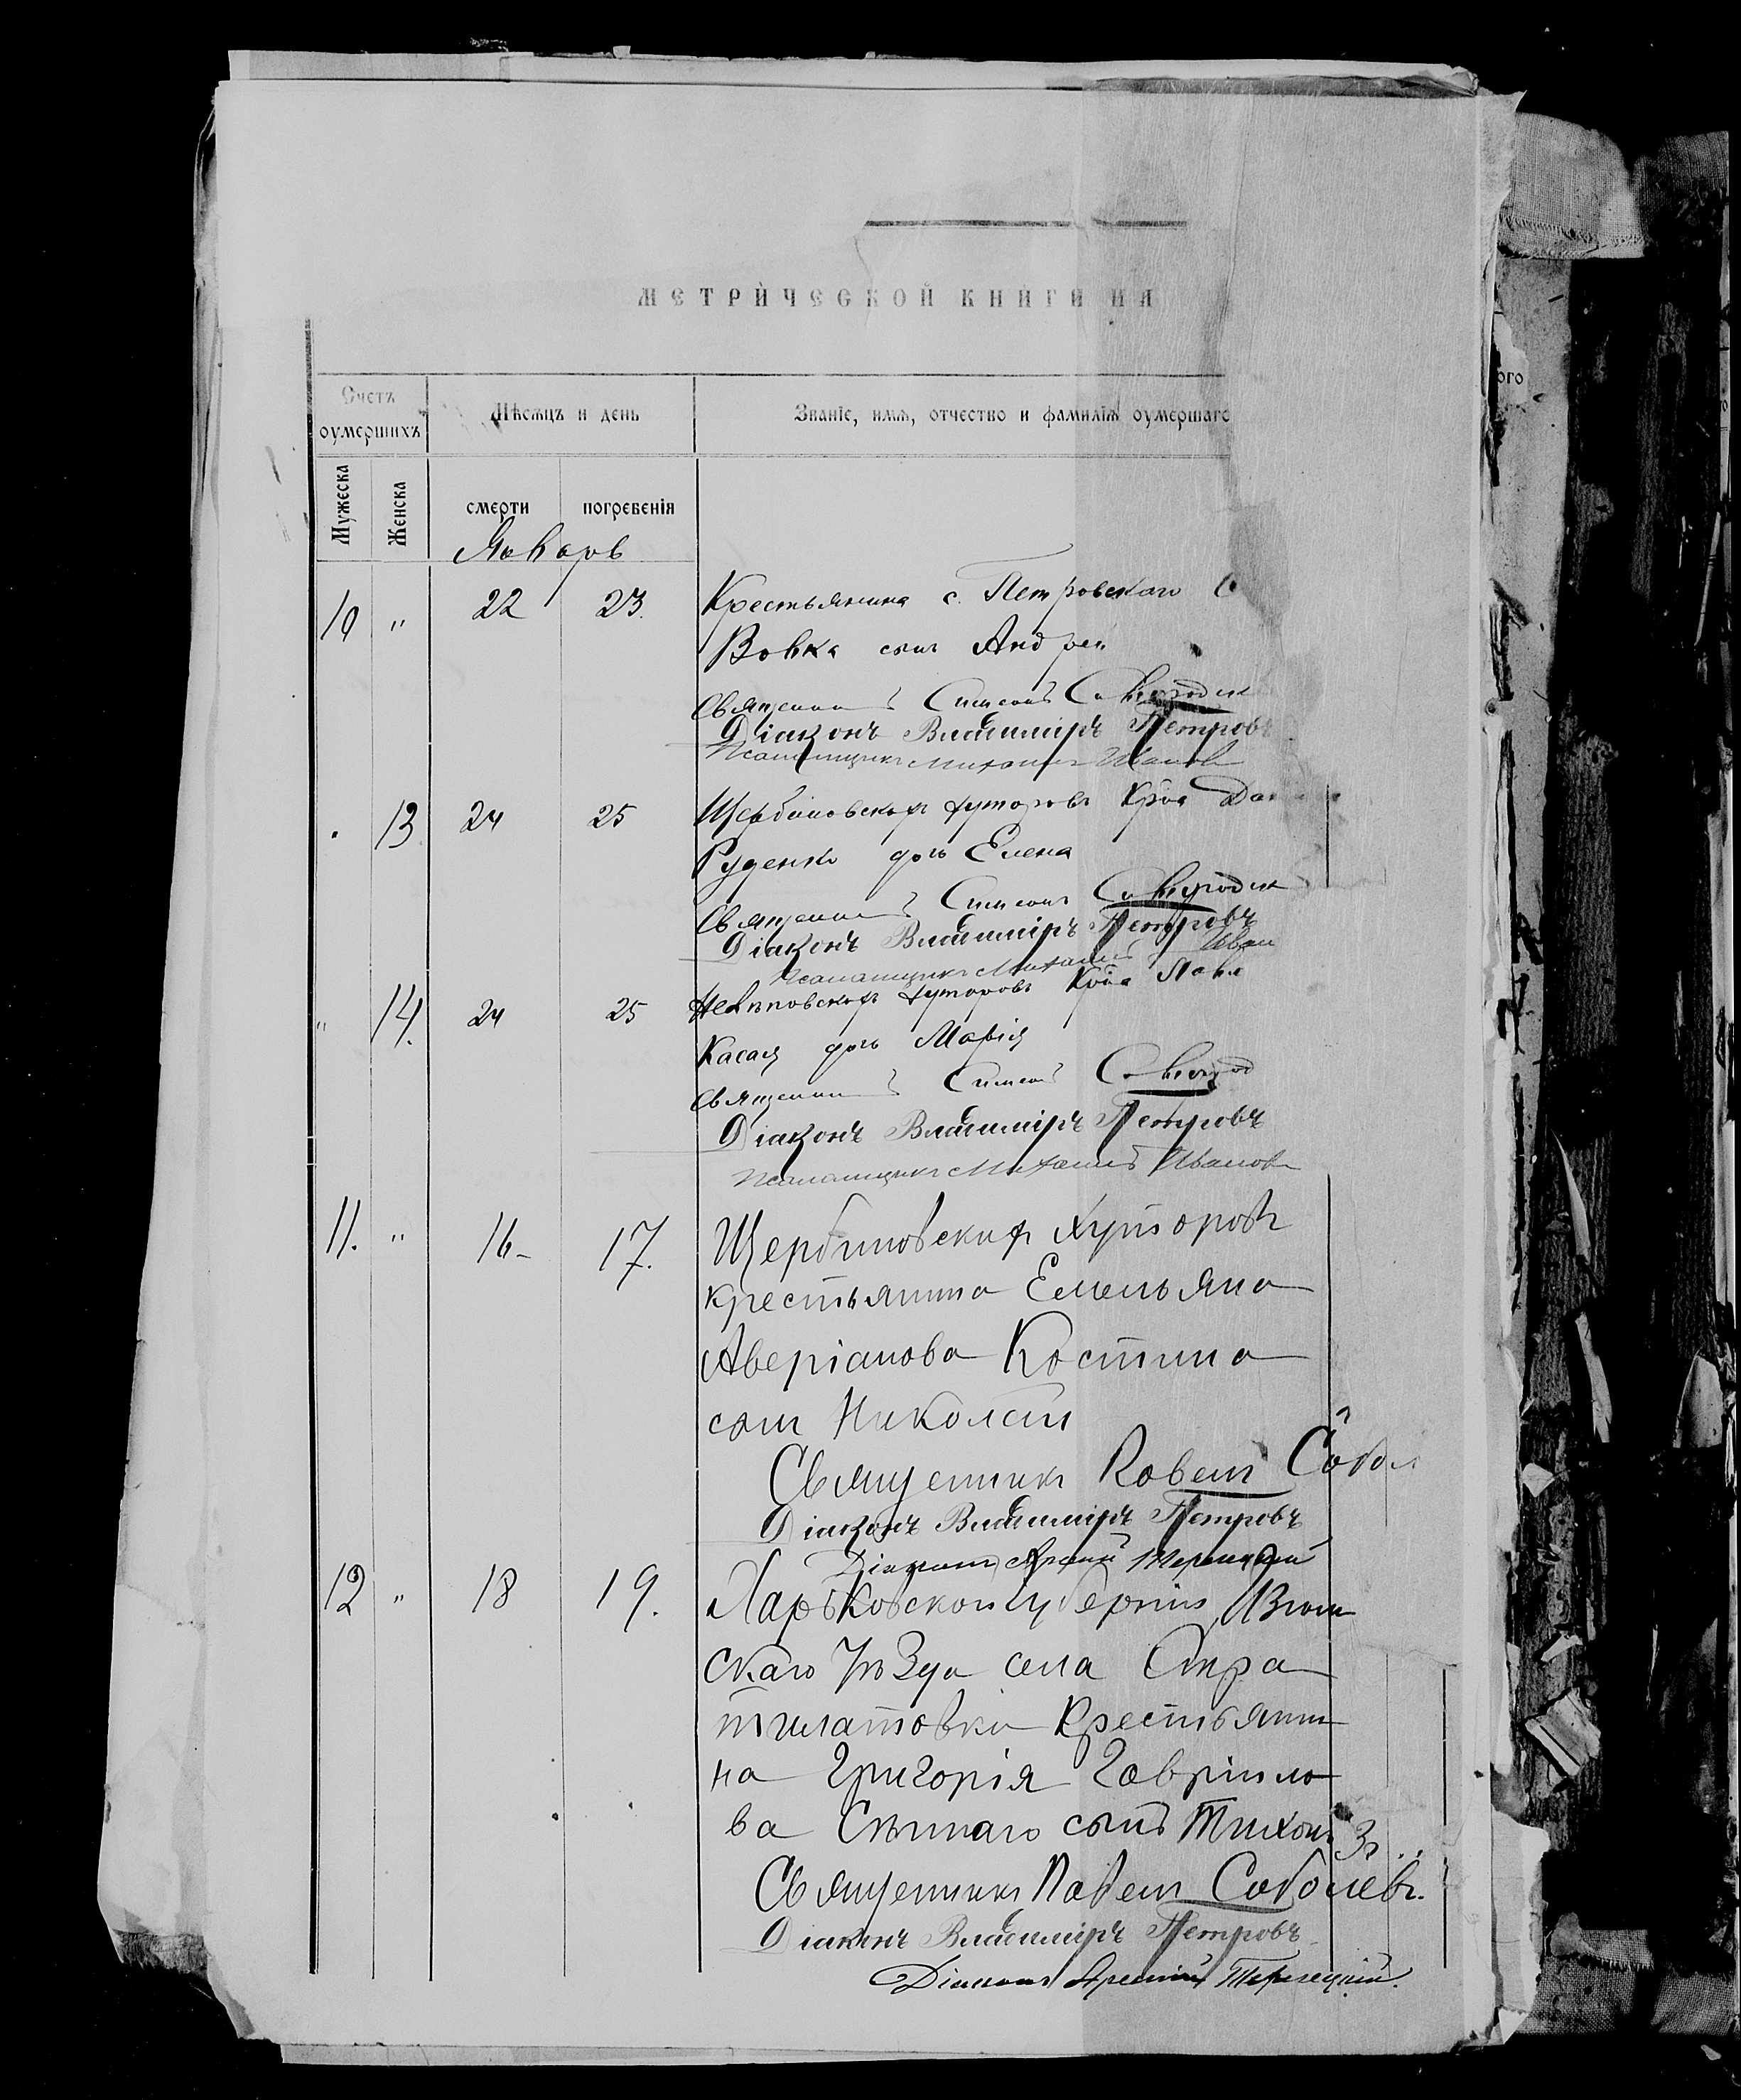 МЕТРИЧЕСКОЙ КНИГИ НА
ого
Счетъ оумершихъ
Мѣсяцъ и день
Званіе, имя, отчество и фамилія оумершаго
Мужеска
Женска
смерти
погребенія
Январь
10 " 22 23. Крестьянина с. Петровскаго
Вовка сынъ Андрей
Священникъ Симеонъ
Діаконъ Владиміръ Петровъ
Псаломщикъ Михаилъ Иванов
. 13 24 25 Щербиновскихъ хуторовъ Кр-на
Руденко дочь Елена
Священникъ Симеонъ
Діаконъ Владиміръ Петровъ
Псаломщикъ Михаилъ Иван
" 14. 24 25 хуторовъ Кр-на Павл
Касая дочь Марія
Священникъ Симеонъ
Діаконъ Владиміръ Петровъ
Псаломщикъ Михаилъ Иванов
11. " 16- 17. Щербиновскихъ хуторовъ
крестьянина Емельяна
Аверіанова Костина
сынъ Николай
Священникъ Павелъ Собол
Діаконъ Владиміръ Петровъ
Діаконъ
12 " 18 19. Харьковской губерніи Изюм
скаго уѣзда села Стра
тилатовки Крестьяни
на Григорія Гаврило
ва сынъ Тихонъ
Священникъ Павелъ Соболевъ.
Діаконъ Владиміръ Петровъ
Діаконъ Терлецкій.